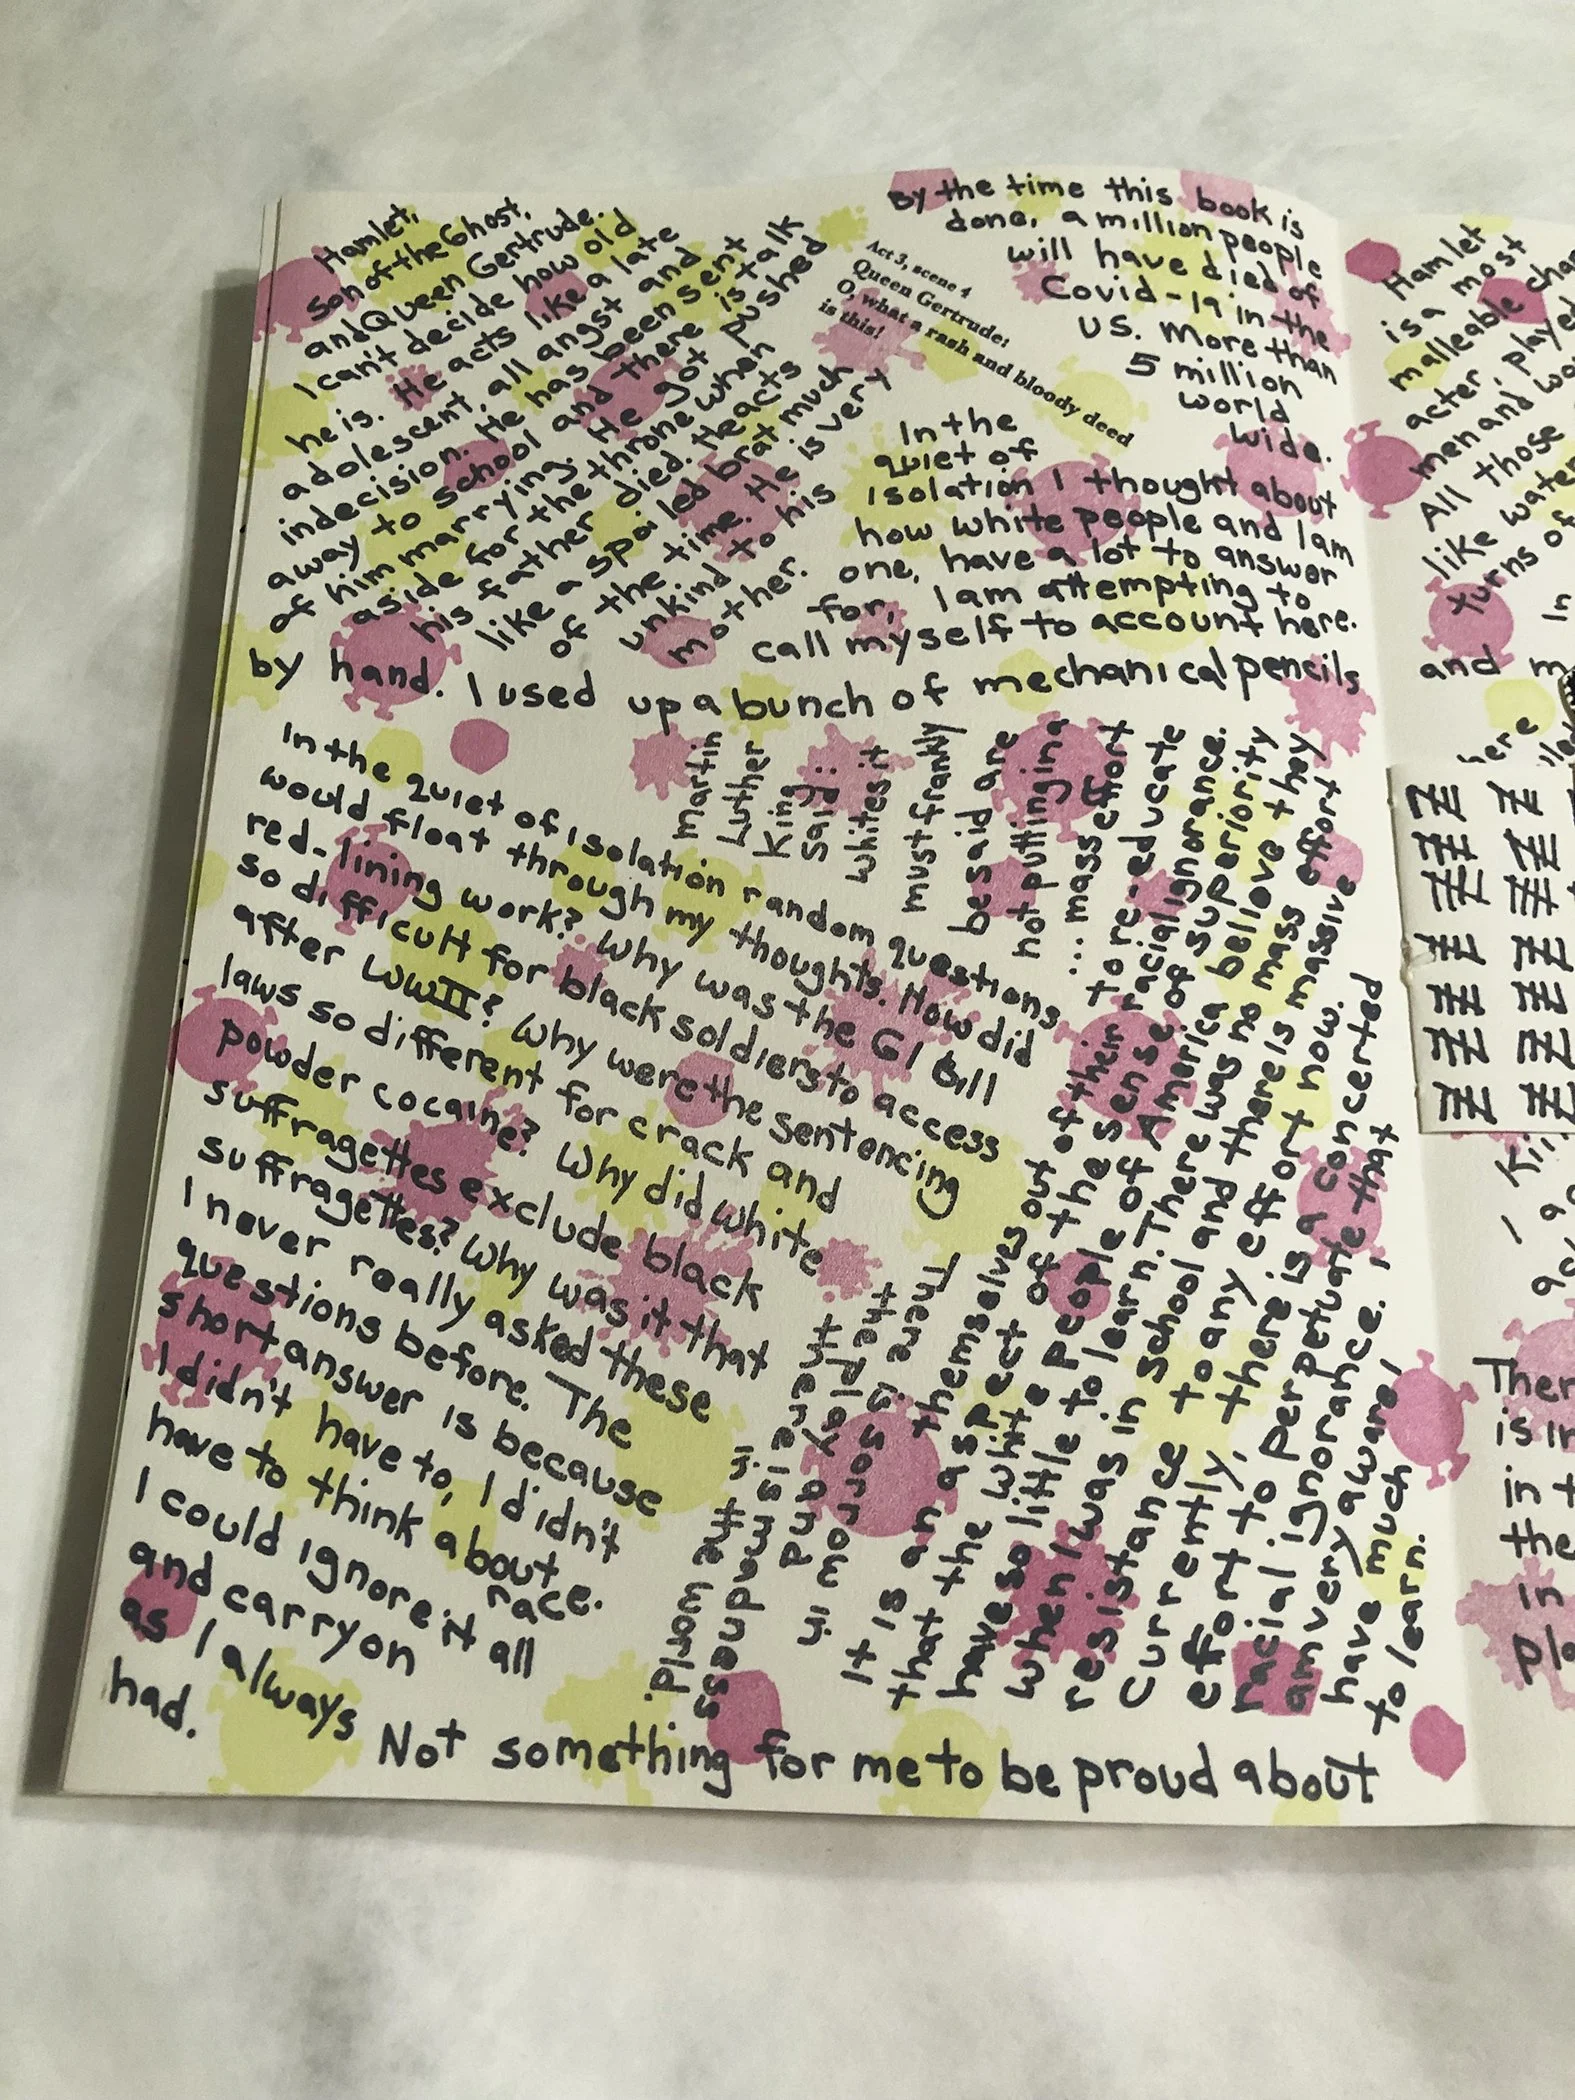 Hamlet,
Son of the Ghost,
and Queen Gertrude.
I can't decide how old
he is. He acts like a late
adolescent, all angst and
indecision. He has been sent
away to school and there is talk
of him marrying. He got pushed
aside for the throne when
his father died. He acts
like a spoiled brat much
of the time. He is very
unkind to his
mother.
Act 3, scene 4
Queen Gertrude:
O, what a rash and bloody deed
is this!
By the time this book is
done, a million people
will have died of
Covid-19 in the
US. More than
5 million
world
wide.
In the
quiet of
isolation I thought about
how white people and I am
one, have a lot to answer
for, I am attempting to
call myself to account here.
by hand. I used up a bunch of mechanical pencils
In the quiet of isolation random questions
would float through my thoughts. How did
red-lining work? Why was the GI Bill
so difficult for black soldiers to access
after WWII? Why were the sentencing
laws so different for crack and
powder cocaine? Why did white
suffragettes exclude black
suffragettes? Why was it that
I never really asked these
questions before. The
short answer is because
I didn't have to, I didn't
have to think about
race.
I could ignore it all
and carry on
as I always
had.
Martin
Luther
King
said:
whites it
must frankly
be said are
not putting in a
... mass effort
to re-educate
themselves out of their racial ignorance.
It is an aspect of the sense of superiority
that the white people of America believe they
have so little to learn. There was no mass effort
when I was in school and there is massive
resistance to any effort now.
Currently, there is a concerted
effort to perpetuate that
racial ignorance. I
am very aware I
have much
to learn.
There is
madness in
the play and
there is madness
in the world.
Not something for me to be proud about
Hamlet
is a most
malleable char
acter, played
men and wo
All those
like water
turns of
in
and m
here
I
Ther
is in
in t
the
in
pla